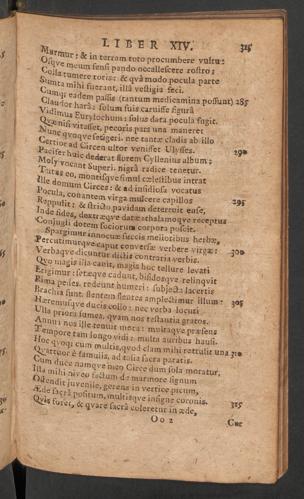 LIBER XIV. 315
Murmur; & in terram toto procumbere vultu:
Osque meum sensi pando occallescere rostro;
Colla tumere toris: & quâ modo pocula parte
Sumta mihi fuerant, illâ vestigia feci.
Cumq; eadem passis (tantum medicamina possunt) 285
Claudor harâ: solum suis caruisse figurâ
Vidimus Eurylochum: solus data pocula fugit.
Quæ nisi vitasset, pecoris pars una maneret
Nunc quoque setigeri. nec tantæ cladis ab illo
Certior ad Circen ultor venisset Ulysses. 290
Pacifer huic dederat florem Cyllenius album;
Moly vocant Superi. nigrâ radice tenetur.
Tutus eo, monitisque simul cælestibus intrat
Ille domum Circes: & ad insidiosa vocatus
Pocula, conantem virga mulcere capillos 295
Reppulit; & stricto pavidam deterruit ense,
Inde fides, dextræque datæ: thalamoque receptus
Conjugii dotem sociorum corpora poscit.
Spargimur innocuæ succis melioribus herbæ,
Percutimurque caput conversæ verbere virgæ: 300
Verbaque dicuntur dictis contraria verbis.
Quo magis illa canit, magis hoc tellure levati
Erigimur: setæque cadunt, bisidosque relinquit
Rima pedes. redeunt humeri: subjecta lacertis
Brachia sunt. flentem flentes amplectimur illum: 305
Hæremusque ducis collo: nec verba locuti
Ulla priora sumus, quam nos testantia gratos.
Annui nos illic tenuit mora: multaque præsens
Tempore tam longo vidi: multa auribus hausi.
Hoc quoq; cum multis, quod clam mihi rettulit una 310
Quattuor è famulis, ad talia sacra paratis.
Cum duce namque meo Circe dum sola moratur,
Illa mihi niveo factum de marmore signum
Ostendit juvenile, gerens in vertice picum,
Æde sacrâ positum, multisque insigne coronis. 315
Quis foret, & quare sacrâ coleretur in æde,
Oo 2 Cur